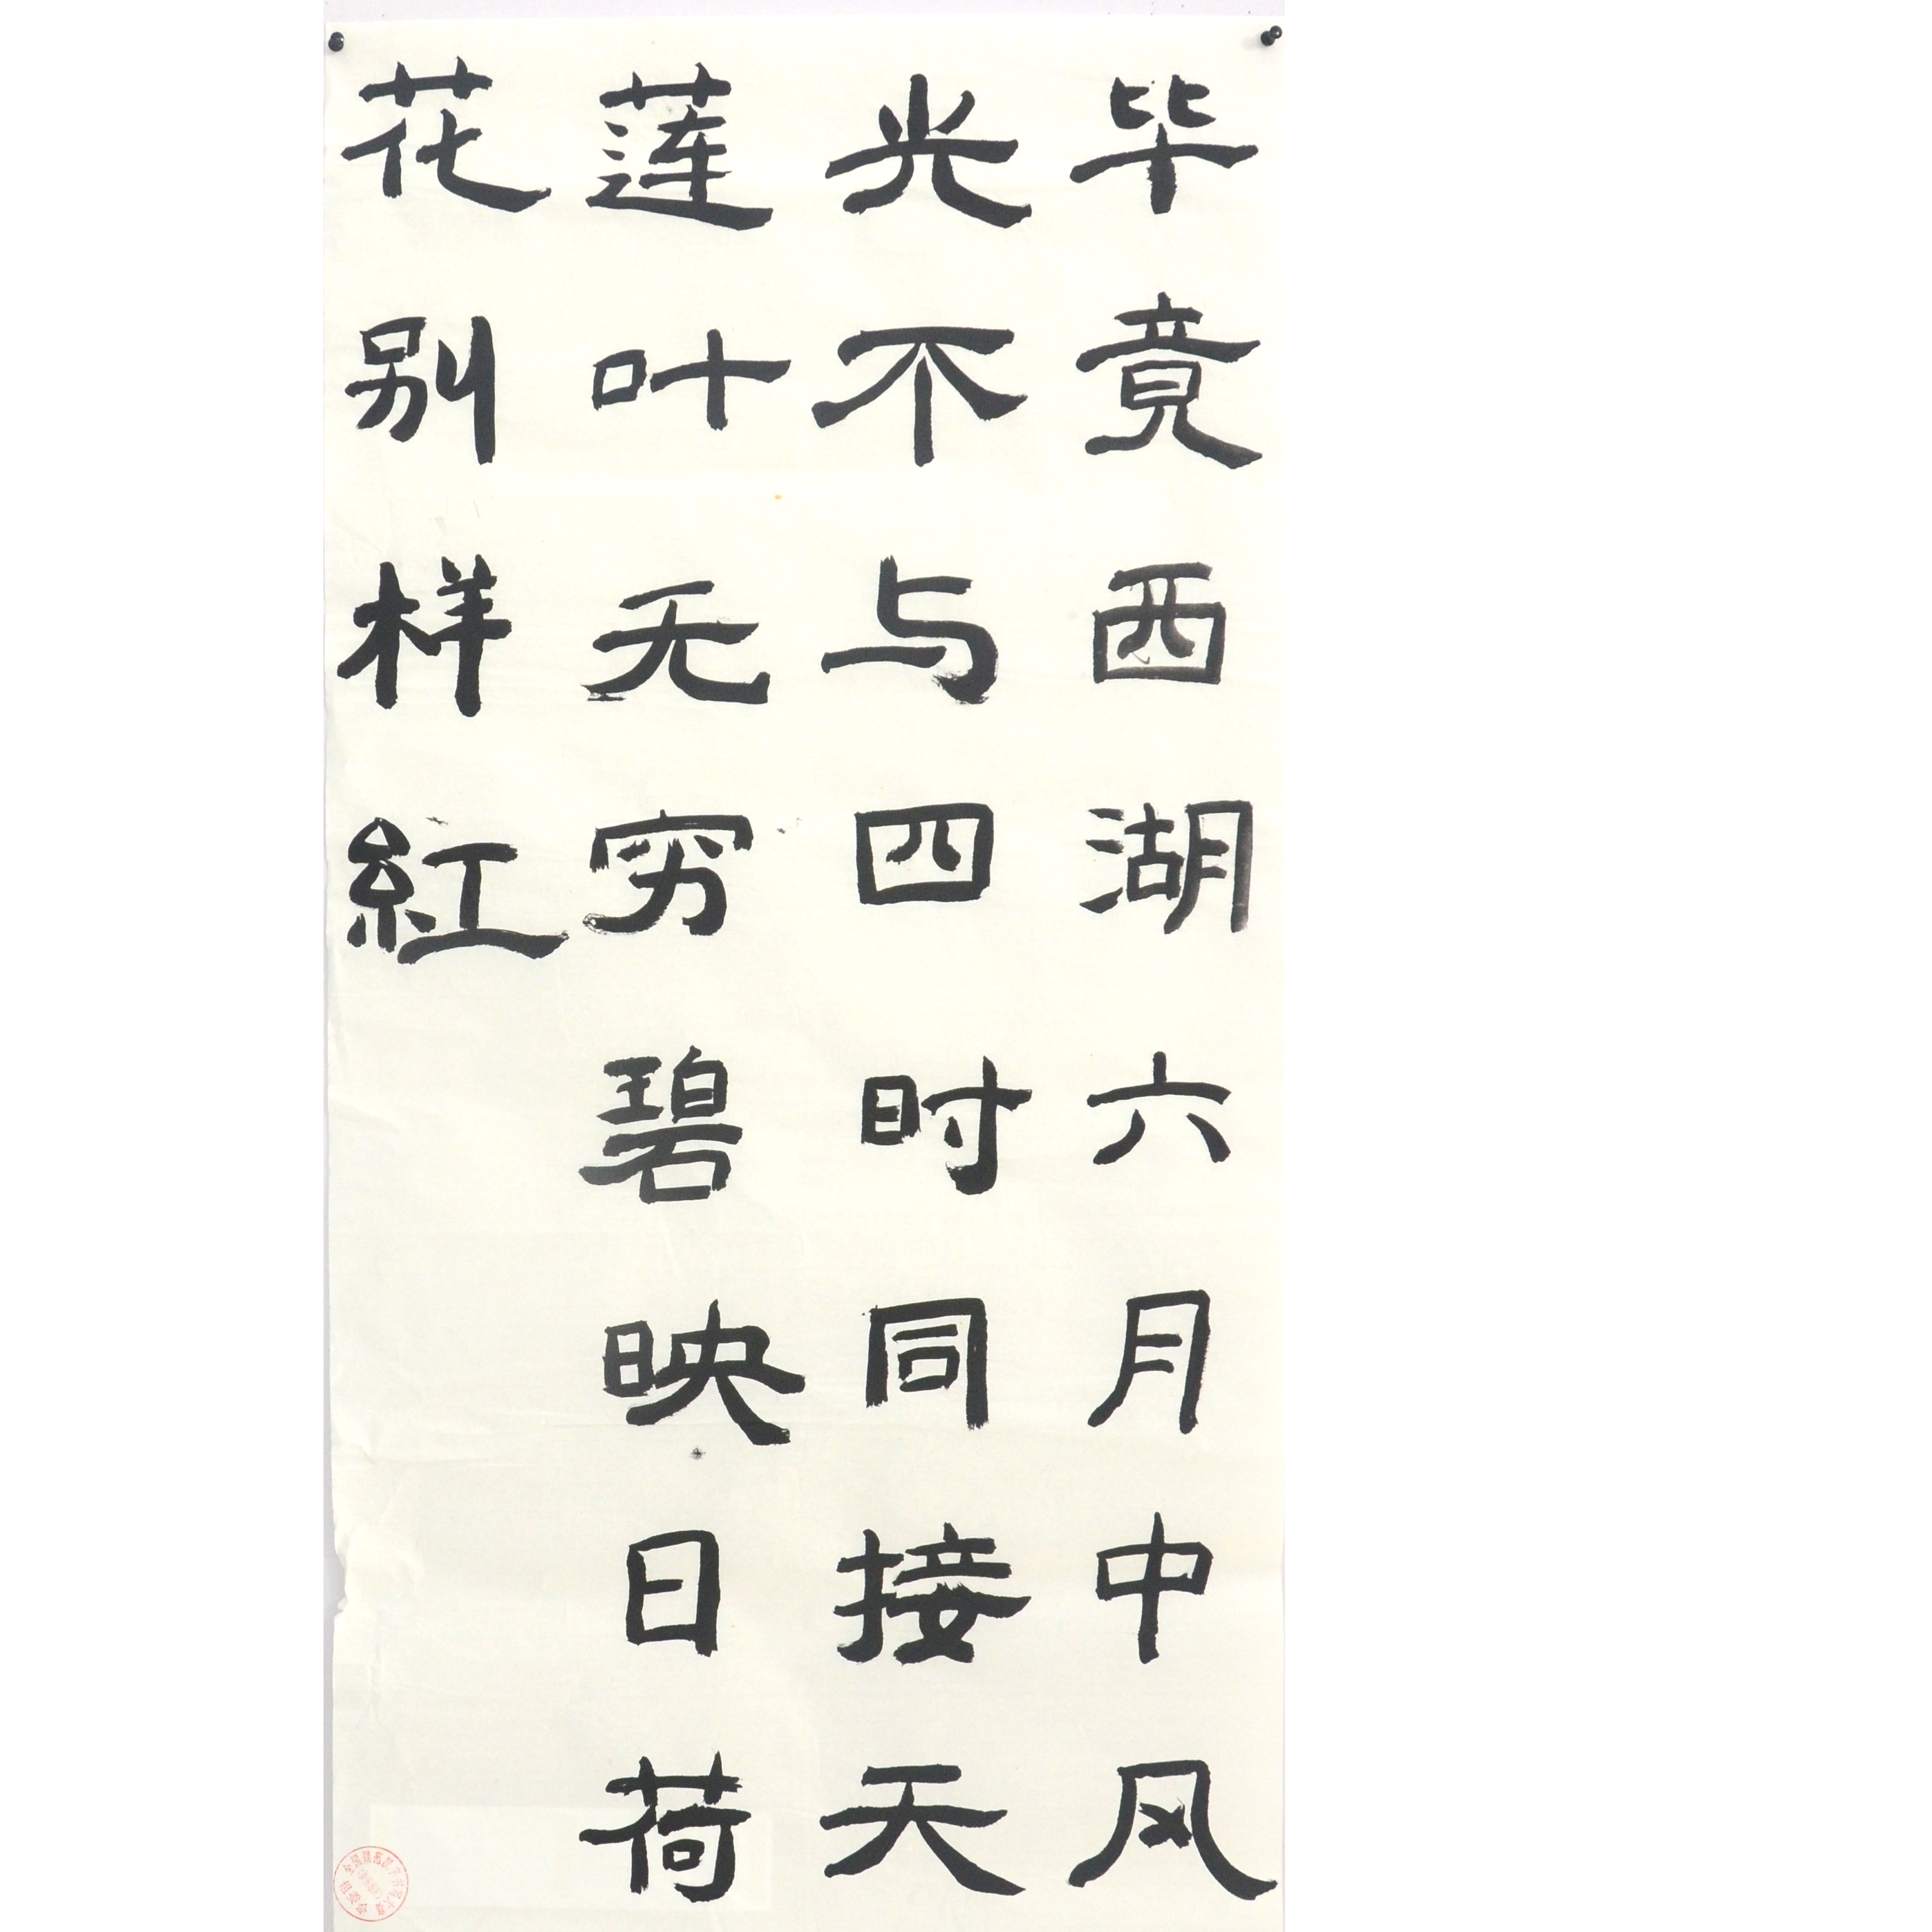 毕竟西湖六月中风
光不与四时同接天
莲叶无穷碧映日荷
花别样紅